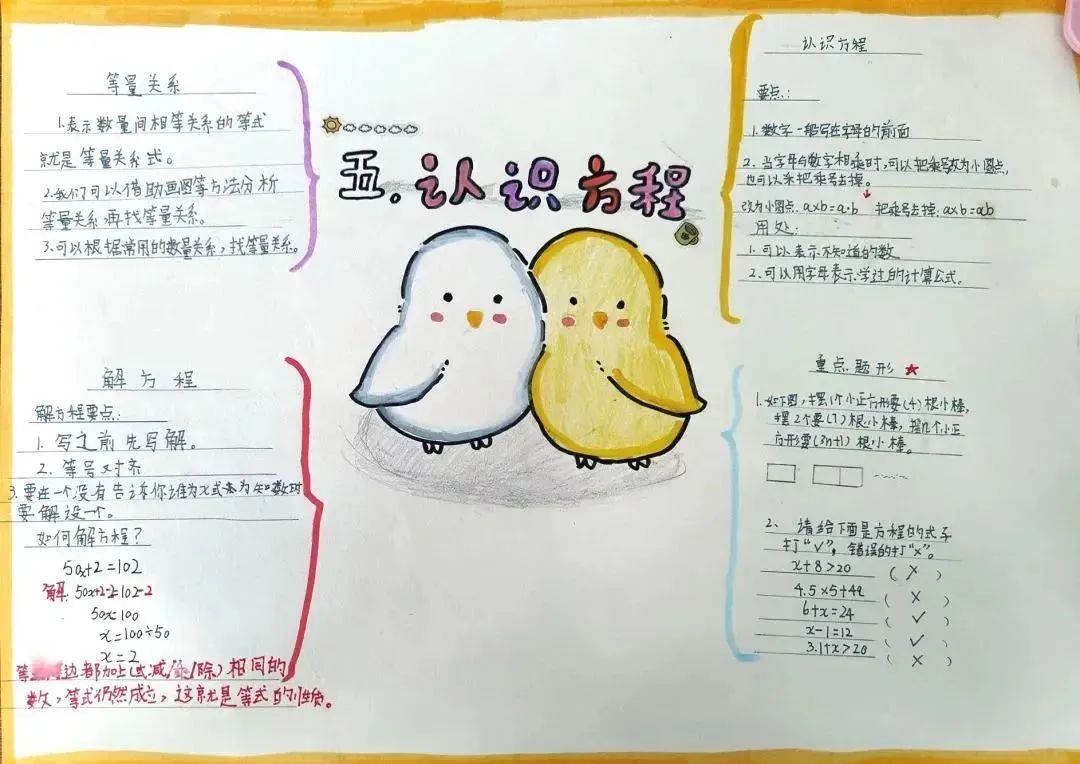 五.认识方程
等量关系
1.表示数量间相等关系的等式
就是等量关系式。
2.我们可以借助画图等方法分析
等量关系再找等量关系。
3.可以根据常用的数量关系,找等量关系。
认识方程
要点:
1.数字一般写在字母的前面
2.当字母与数字相乘时,可以把乘号改为小圆点,
也可以来把乘号去掉。
改为小圆点.a×b=a·b 把乘号去掉.a×b=ab
用处:
1.可以表示不知道的数
2.可以用字母表示学过的计算公式。
解方程
解方程要点:
1.写之前先写解。
2.等号对齐
3.要在一个没有告诉你谁为x式 为 知数时
要解设一个。
如何解方程?
50x+2=102
解:50x+2-2=102-2
50x=100
x=100÷50
x=2
等 边都加(或减/ /除)相同的
数,等式仍然成立,这就是等式的性质。
重点题形
1.如下图,摆1个小正方形要(4)根小棒,
摆2个要(7)根小棒,摆n个小正
方形要(3n+1)根小棒。
2、请给下面是方程的式子
打“√”,错误的打“×”。
x+8>20 (×)
4.5×5+4 (×)
6+x=24 (√)
x-1=12 (√)
3.1+x>20 (×)